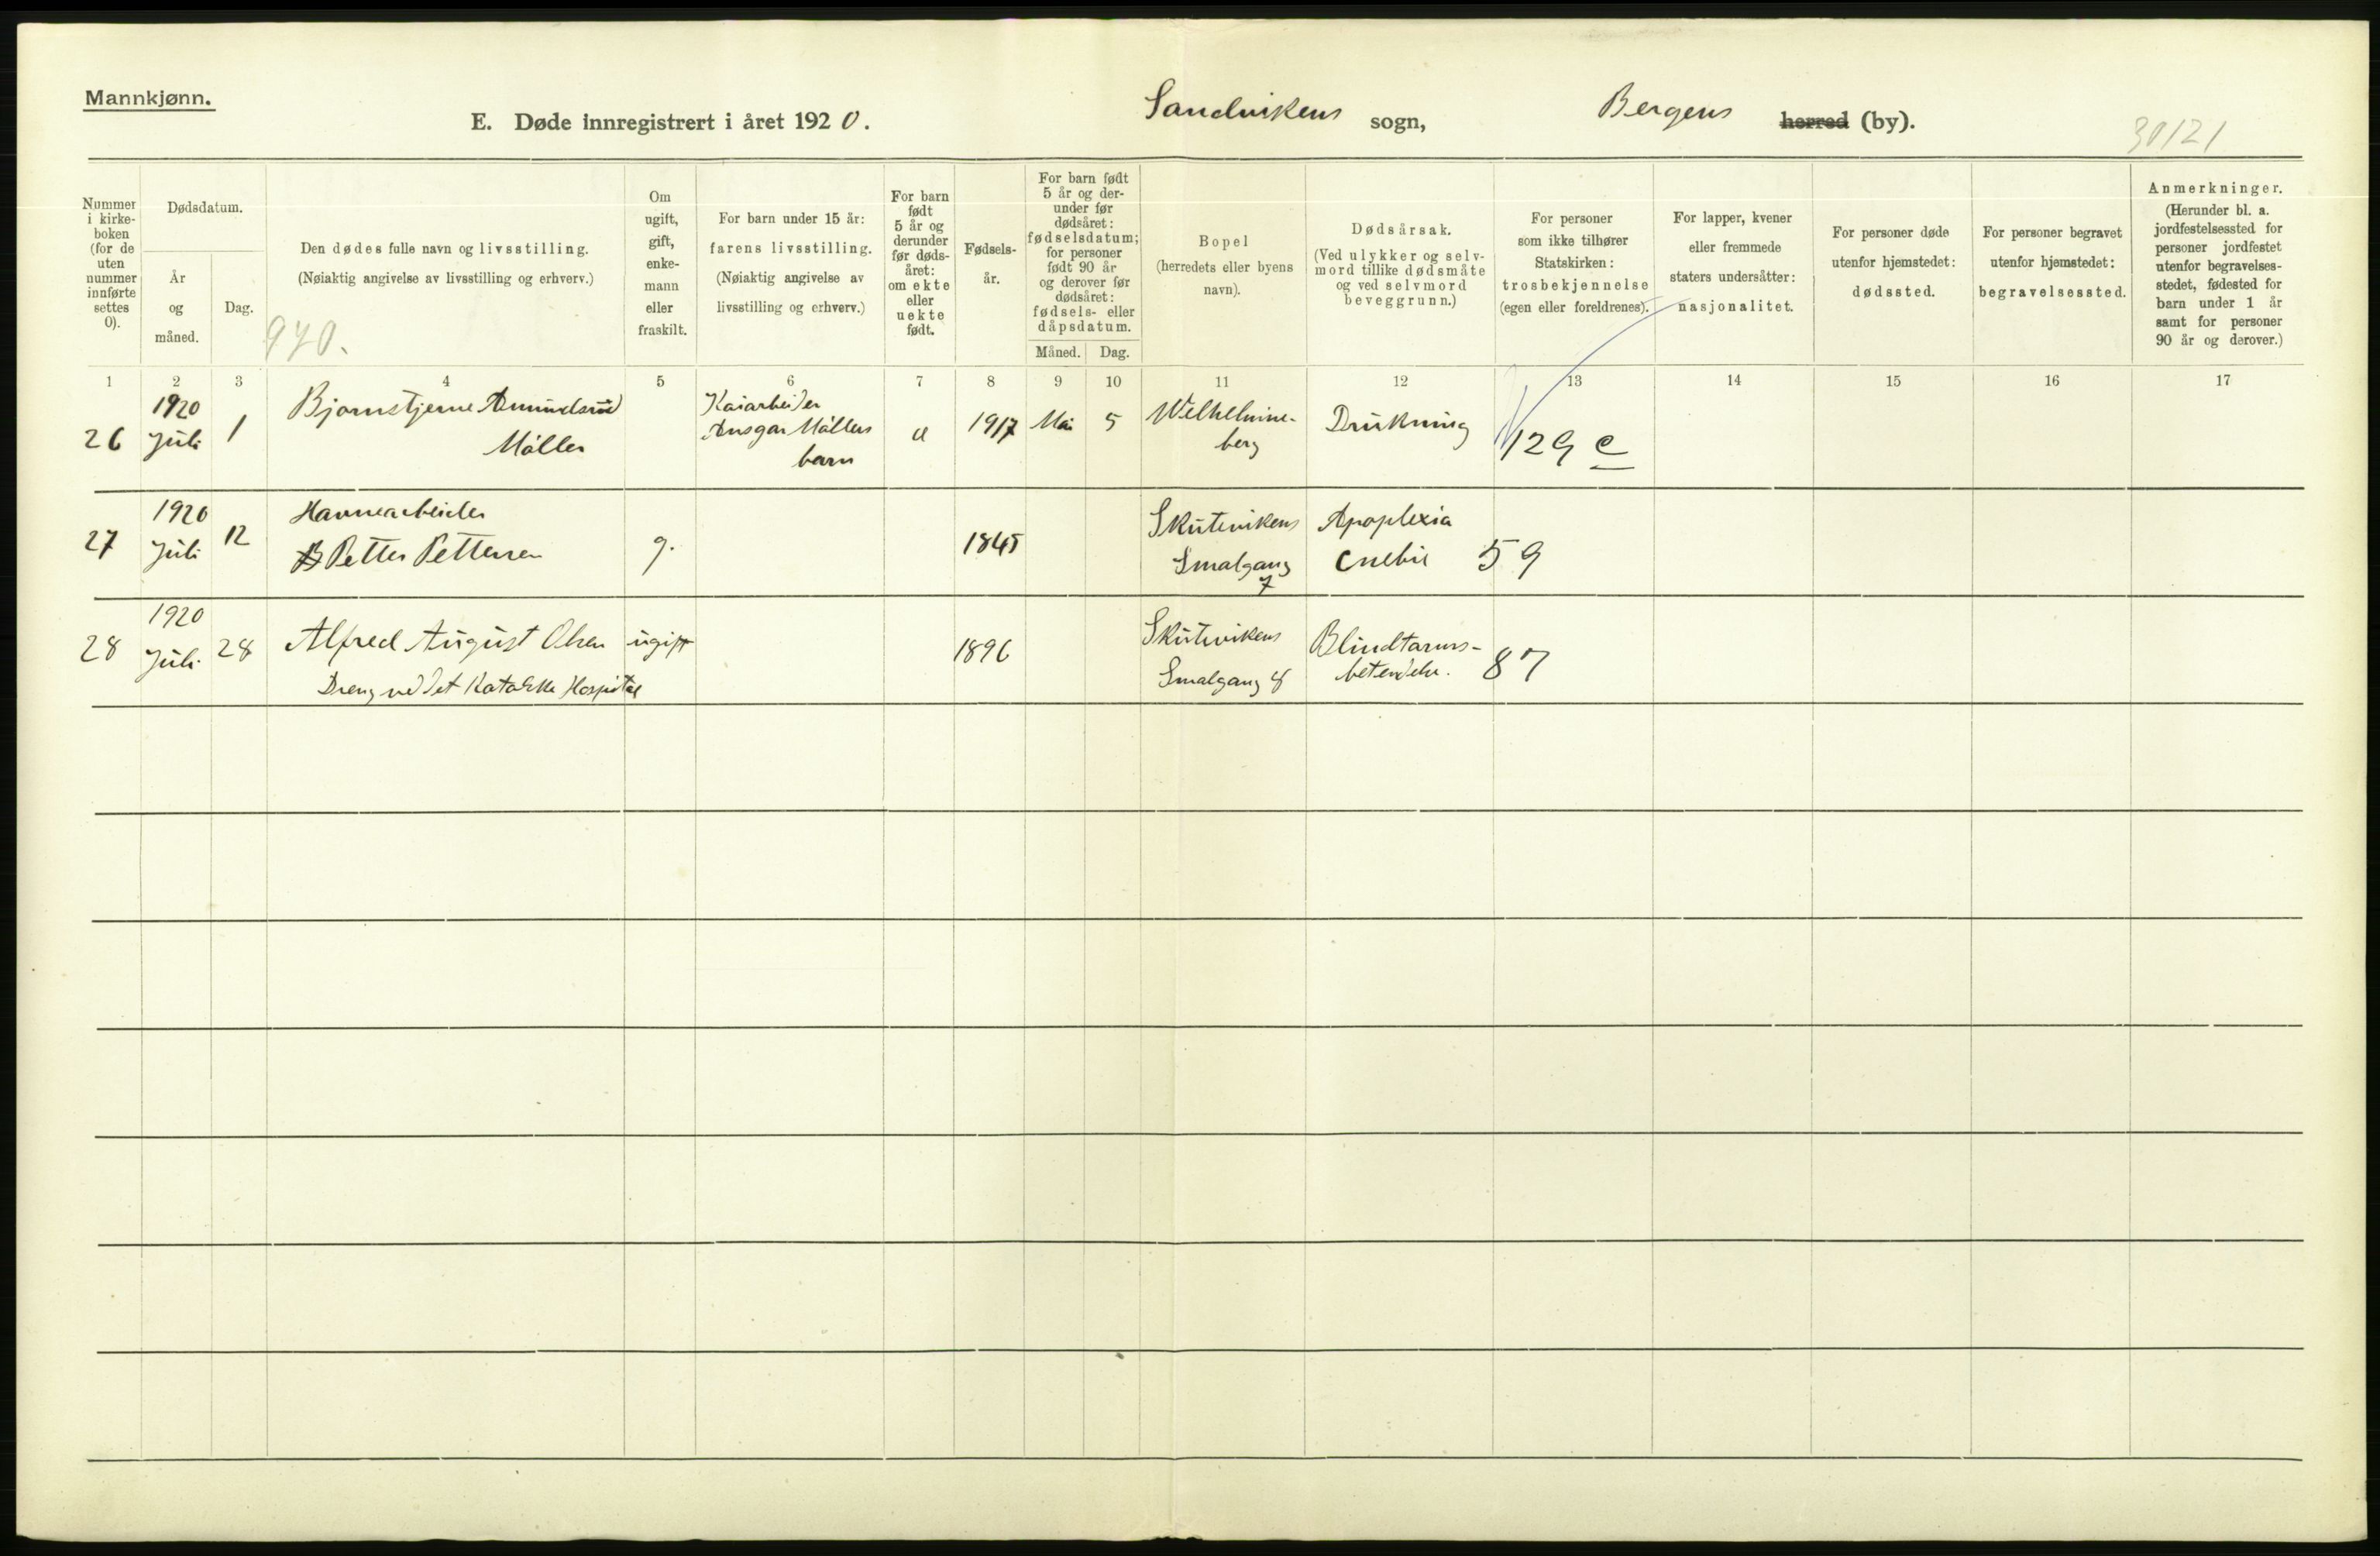 Mannkjønn.
E. Døde innregistrert i året 1920. Sandvikens sogn, Bergens herred (by).
30/21
Nummer i kirke-boken (for de uten nummer innførte settes 0).
Dødsdatum.
År og måned.
Dag.
Den dødes fulle navn og livsstilling.
(Nøiaktig angivelse av livsstilling og erhverv.)
970.
Om ugift, gift, enke-mann eller fraskilt.
For barn under 15 år: farens livsstilling.
(Nøiaktig angivelse av livsstilling og erhverv.)
For barn født 5 år og derunder før døds-året: om ekte eller uekte født.
Fødsels-år.
For barn født 5 år og der-under før dødsåret: fødselsdatum; for personer født 90 år og derover før dødsåret: fødsels- eller dåpsdatum.
Måned. Dag.
Bopel
(herredets eller byens navn).
Dødsårsak.
(Ved ulykker og selv-mord tillike dødsmåte og ved selvmord beveggrunn.)
For personer som ikke tilhører Statskirken: trosbekjennelse (egen eller foreldrenes).
For lapper, kvener eller fremmede staters undersåtter: nasjonalitet.
For personer døde utenfor hjemstedet: dødssted.
For personer begravet utenfor hjemstedet: begravelsessted.
Anmerkninger.
(Herunder bl. a. jordfestelsessted for personer jordfestet utenfor begravelses-stedet, fødested for barn under 1 år samt for personer 90 år og derover.)
1 2 3 4 5 6 7 8 9 10 11 12 13 14 15 16 17
1920 Bjørnstjerne Amundsrud Kaiarbeider Wilhelmine-
26 Juli 1 Møller Ansgar Møllers u 1917 Mai 5 berg Drukning 129 e
barn
1920 Havnearbeider Skutevikens Apoplexia
27 Juli 12 Petter Pettersen g. 1845 Smalgang 7 59
1920 Skutevikens Blindtarms-
28 Juli 28 Alfred August Olsen ugift 1896 Smalgang 8 betendelse. 87
Dreng ved det Katolske Hospital